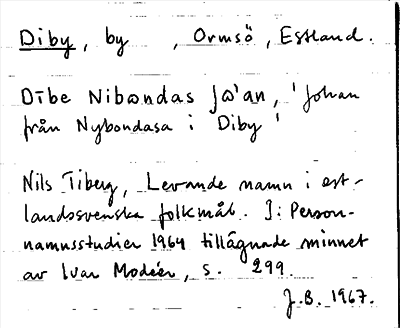 Diby, by , Ormsö, Estland.
Dībe Nibondas Jo'an, 'Johan
från Nybondasa i Diby'
Nils Tiberg, Levande namn i est-
landssvenska folkmål. I: Person-
namnsstudier 1964 tillägnade minnet
av Ivar Modéer, s. 299.
J.B. 1967.